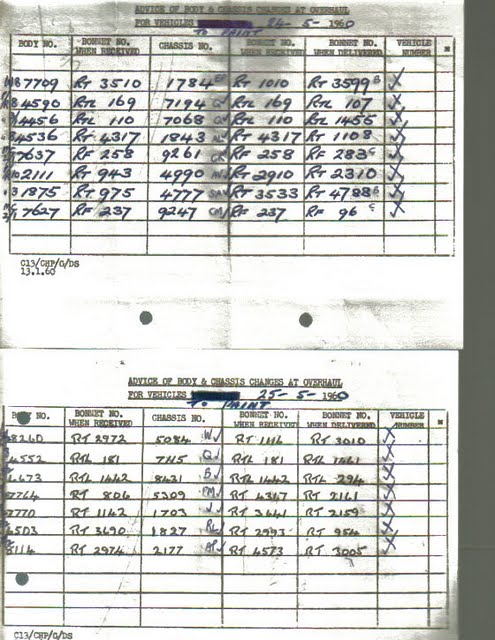 ADVICE OF BODY & CHASSIS CHANGES AT OVERHAUL
FOR VEHICLES 24-5-1960
TO PAINT
BODY NO. BONNET NO. WHEN RECEIVED CHASSIS NO. BONNET NO. WHEN RECEIVED BONNET NO. WHEN DELIVERED VEHICLE NUMBER
7709 RT 3510 1784 RT 1010 RT 3599
4590 RTL 169 7194 RTL 169 RTL 107
4456 RTL 110 7068 RTL 110 RTL 1455
4536 RT 4317 1843 RT 4317 RT 1108
7637 RF 258 9261 RF 258 RF 283
2111 RT 943 4990 RT 2910 RT 2310
1875 RT 975 4777 RT 3533 RT 4788
7627 RF 237 9247 RF 237 RF 96
C13/CHP/G/DS
13.1.60
ADVICE OF BODY & CHASSIS CHANGES AT OVERHAUL
FOR VEHICLES 25-5-1960
TO PAINT
NO. BONNET NO. WHEN RECEIVED CHASSIS NO. BONNET NO. WHEN RECEIVED BONNET NO. WHEN DELIVERED VEHICLE NUMBER
8260 RT 2972 5084 W RT 1116 RT 3010
4552 RTL 181 7145 RTL 181 RTL 1461
4673 RTL 1442 8431 RTL 1442 RTL 294
7764 RT 806 5309 RT 4347 RT 2161
7770 RT 1142 1703 RT 3641 RT 2159
4503 RT 3690 1827 RT 2993 RT 954
8114 RT 2974 2177 RT 4573 RT 3005
C13/CHP/G/DS